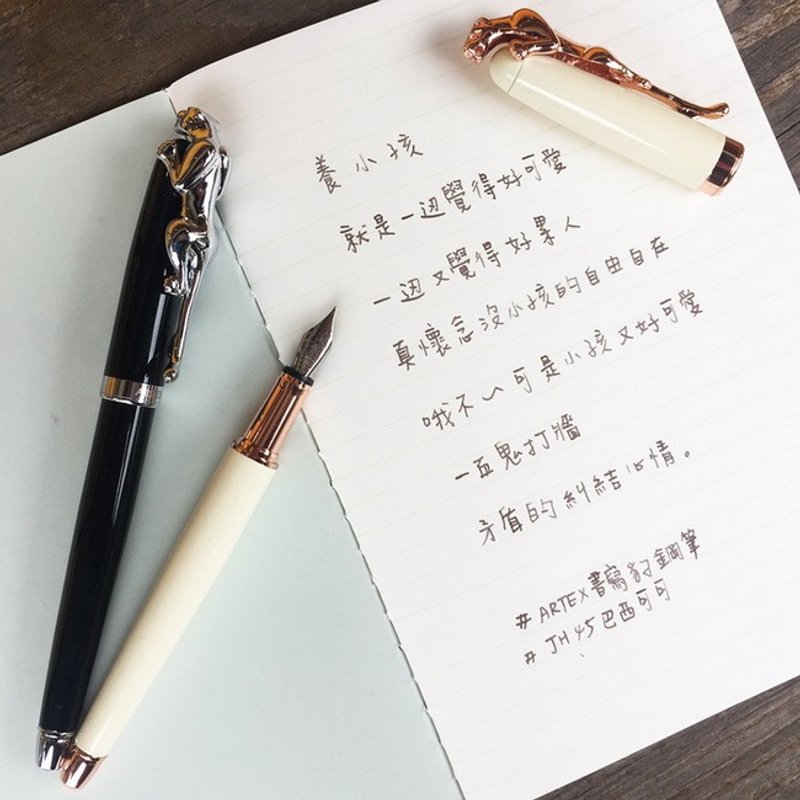 養小孩
就是一边覺得好可愛
一边又覺得好累人
真懷念沒小孩的自由自在
哦不～可是小孩又好可愛
一直鬼打牆
矛盾的糾結心情。
# ARTEX書寫豹鋼筆
# JH45巴西可可